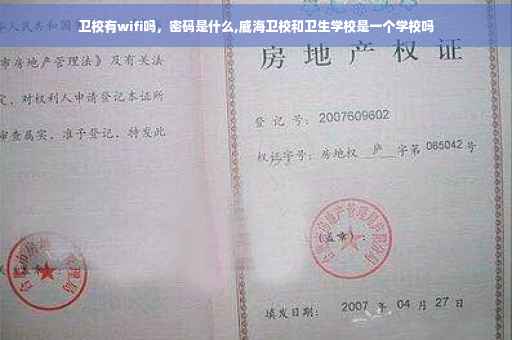 卫校有wifi吗，密码是什么,威海卫校和卫生学校是一个学校吗
华人民共和国
市房地产管理法》及有关法
定，对权利人申请登记本证所
审查属实，准予登记，特发此
房地产权证
登记号：2007609602
权证字号：房地权 庐 字第 085042 号
(盖章)：
填发日期：2007 年 04 月 27 日